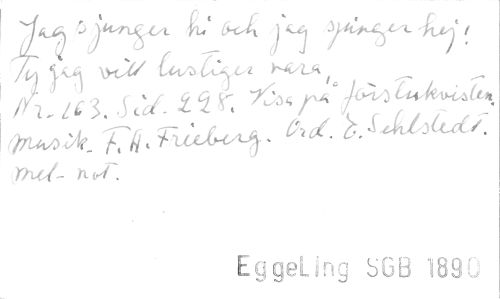 Jag sjunger hi och jag sjunger hej!
Ty jag vill lustiger vara,
Nr. 163. Sid. 228. Visa på förstukvisten.
musik. F.A. Frieberg. Ord. E. Sehlstedt.
mel-not.
EggeLing SGB 1890